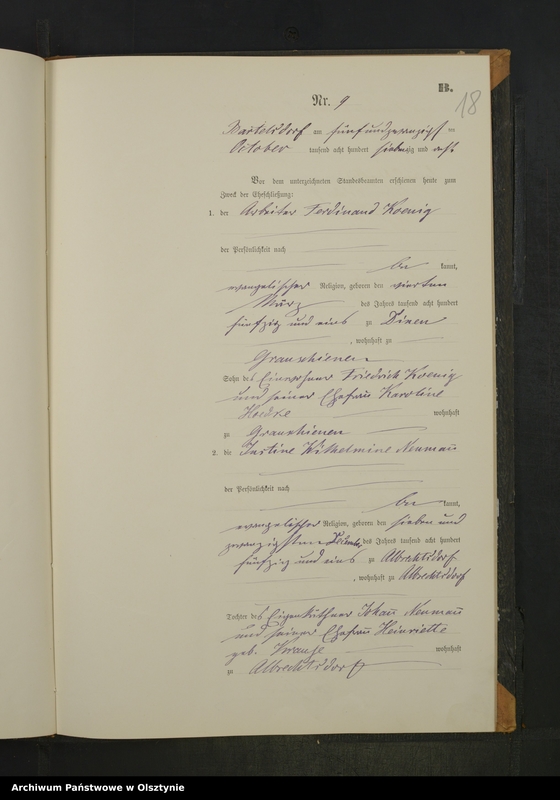 B.
18
Nr. 9
Bartelsdorf am fünfundzwanzigsten
October tausend acht hundert siebenzig und acht
Vor dem unterzeichneten Standesbeamten erschienen heute zum
Zweck der Eheschließung:
1. der Arbeiter Ferdinand Koenig
der Persönlichkeit nach
be kannt,
evangelischer Religion, geboren den vierten
März des Jahres tausend acht hundert
fünfzig und eins zu
, wohnhaft zu
Grauschienen
Sohn des Einwohner Friedrich Koenig
und seiner Ehefrau Karoline
wohnhaft
zu Grauschienen
2. die Justine Wilhelmine Neumann
der Persönlichkeit nach
be kannt,
evangelischer Religion, geboren den sieben und
zwanzigsten des Jahres tausend acht hundert
fünfzig und eins zu Albrechtsdorf
, wohnhaft zu Albrechtsdorf
Tochter des Eigenkäthner Johann Neumann
und seiner Ehefrau Heinriette
geb. Krause wohnhaft
zu Albrechtsdorf
Archiwum Państwowe w Olsztynie